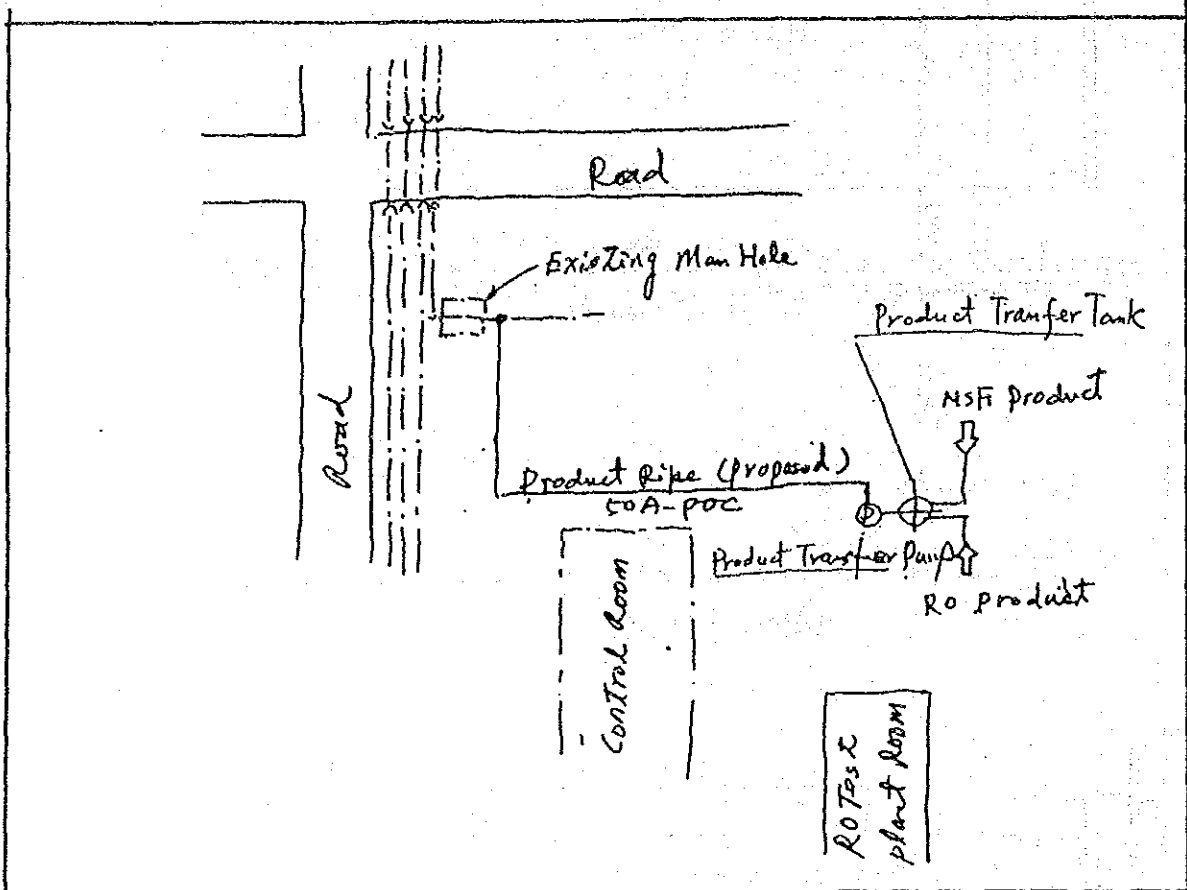 Road
Existing Man Hole
Product Tranfer Tank
MSF Product
Road
Product Pipe (proposed)
50A-POC
Product Transfer Pump
RO Product
Control Room
RO Test
plant Room